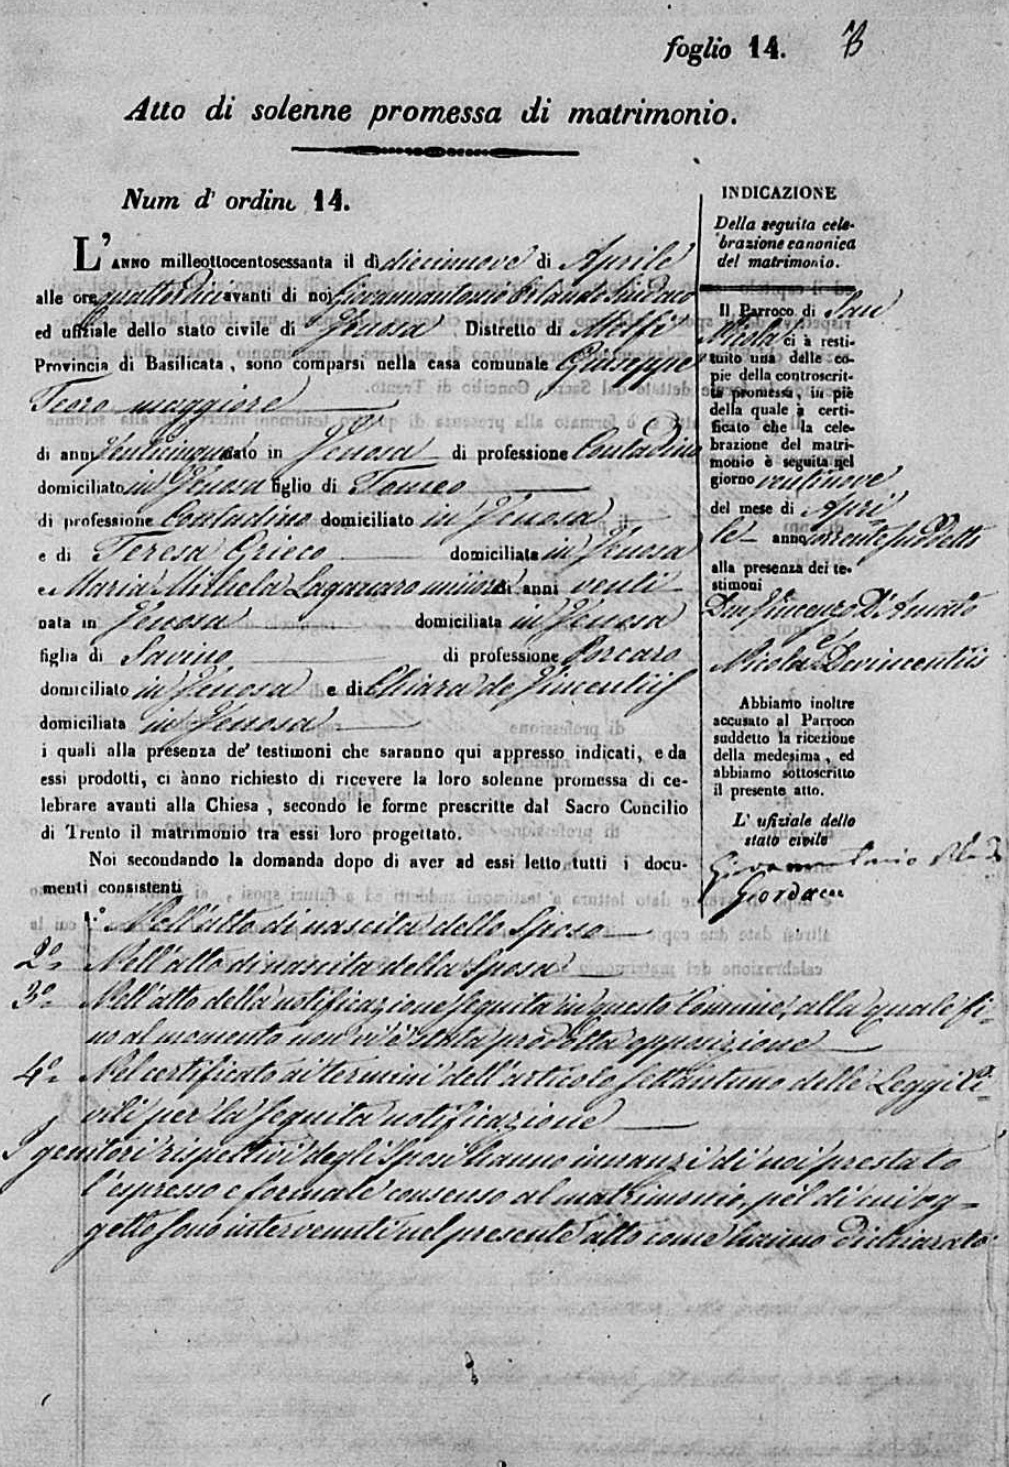 foglio 14.
Atto di solenne promessa di matrimonio.
Num d' ordine 14.
L' ANNO milleottocentosessanta il dì diecinnove di Aprile
alle ore quattordici avanti di noi Giovannantonio Orlando Sindaco
ed uffiziale dello stato civile di Venosa Distretto di Melfi
Provincia di Basilicata, sono comparsi nella casa comunale Giuseppe
Teora maggiore
di anni Venticinque nato in Venosa di professione Contadino
domiciliato in Venosa figlio di Tomeo
di professione Contadino domiciliato in Venosa
e di Teresa Grieco domiciliata in Venosa
e Maria Michela Lagannaro minore di anni venti
nata in Venosa domiciliata in Venosa
figlia di Savino di professione Porcaro
domiciliato in Venosa e di Chiara de Vincentiis
domiciliata in Venosa
i quali alla presenza de' testimoni che saranno qui appresso indicati, e da
essi prodotti, ci ànno richiesto di ricevere la loro solenne promessa di ce-
lebrare avanti alla Chiesa, secondo le forme prescritte dal Sacro Concilio
di Trento il matrimonio tra essi loro progettato.
Noi secondando la domanda dopo di aver ad essi letto tutti i docu-
menti consistenti
1.° Nell'atto di nascita dello Sposo
2.° Nell'atto di nascita della Sposa
3.° Nell'atto della notificazione seguita in questo Comune, alla quale fi-
no al momento non vi è stata prodotta opposizione
4.° Nel certificato ai termini dell'articolo settantuno delle Leggi Ci=
vili per la seguita notificazione
I genitori rispettivi degli Sposi hanno innanzi di noi prestato
l'espresso e formale consenso al matrimonio, pel di cui og=
getto sono intervenuti nel presente atto come hanno dichiarato
INDICAZIONE
Della seguita cele-
brazione canonica
del matrimonio.
Il Parroco di San
Nicola ci à resti-
tuito una delle co-
pie della controscrit-
ta promessa, in piè
della quale à certi-
ficato che la cele-
brazione del matri-
monio è seguita nel
giorno ventinove
del mese di Apri
le anno corrente suddetto
alla presenza dei te-
stimoni
Don Vincenzo D'Amato
e
Nicola Devincentiis
Abbiamo inoltre
accusato al Parroco
suddetto la ricezione
della medesima, ed
abbiamo sottoscritto
il presente atto.
L' ufiziale dello
stato civile
Giovannantonio